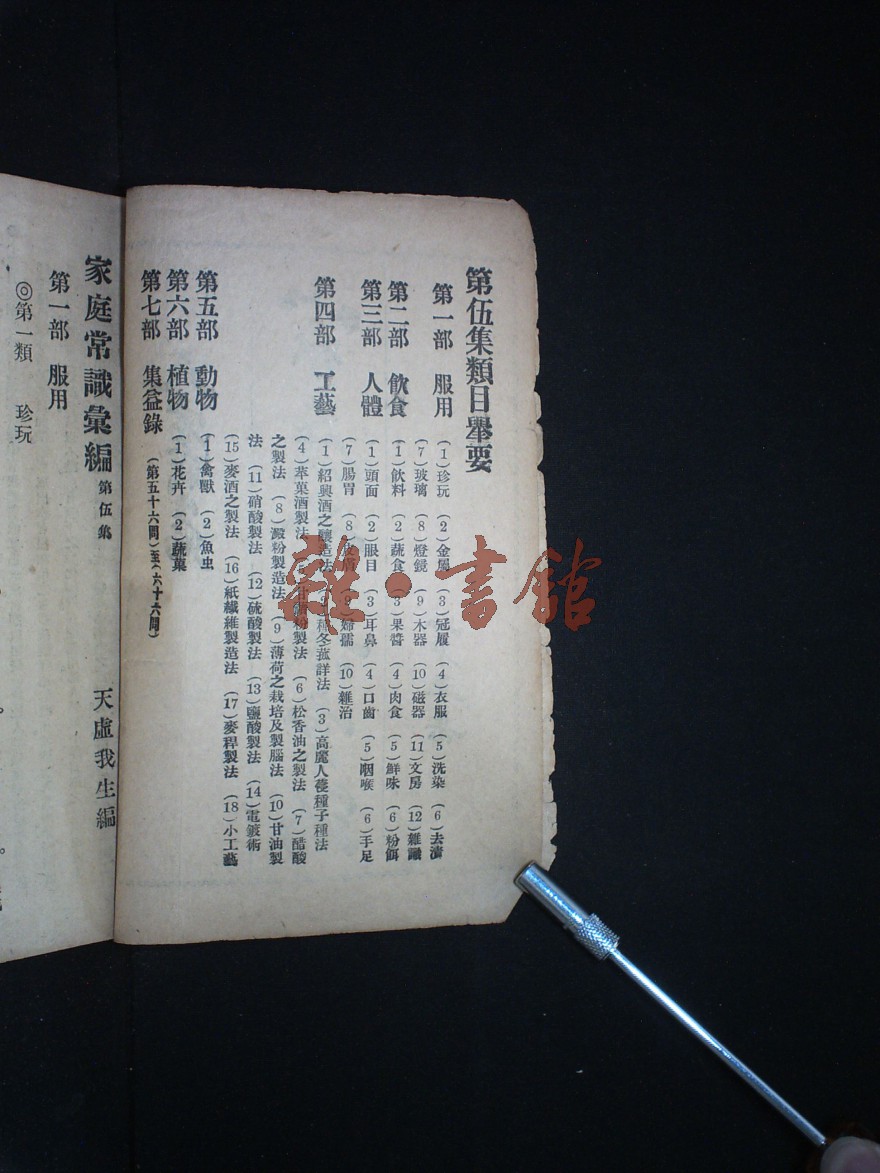 第伍集類目舉要
第一部 服用 (1)珍玩 (2)金屬 (3)冠履 (4)衣服 (5)洗染 (6)去漬
(7)玻璃 (8)燈鏡 (9)木器 (10)磁器 (11)文房 (12)雜
第二部 飲食 (1)飲料 (2)蔬食 (3)果醬 (4)肉食 (5)鮮味 (6)粉餌
第三部 人體 (1)頭面 (2)眼目 (3)耳鼻 (4)口齒 (5)咽喉 (6)手足
(7)腸胃 (8)皮膚 (9)婦孺 (10)雜治
第四部 工藝 (1)紹興酒之釀造法 種冬菰詳法 (3)高麗人蓡種子種法
(4)苹菓酒製法 粉製法 (6)松香油之製法 (7)醋酸
之製法 (8)澱粉製造法 (9)薄荷之栽培及製腦法 (10)甘油製
法 (11)硝酸製法 (12)硫酸製法 (13)鹽酸製法 (14)電鍍術
(15)麥酒之製法 (16)紙纖維製造法 (17)麥稈製法 (18)小工藝
第五部 動物 (1)禽獸 (2)魚虫
第六部 植物 (1)花卉 (2)蔬菓
第七部 集益錄 (第五十六問)至(六十六問)
家庭常識彙編 第伍集 天虛我生編
第一部 服用
◎第一類 珍玩
雜·書館